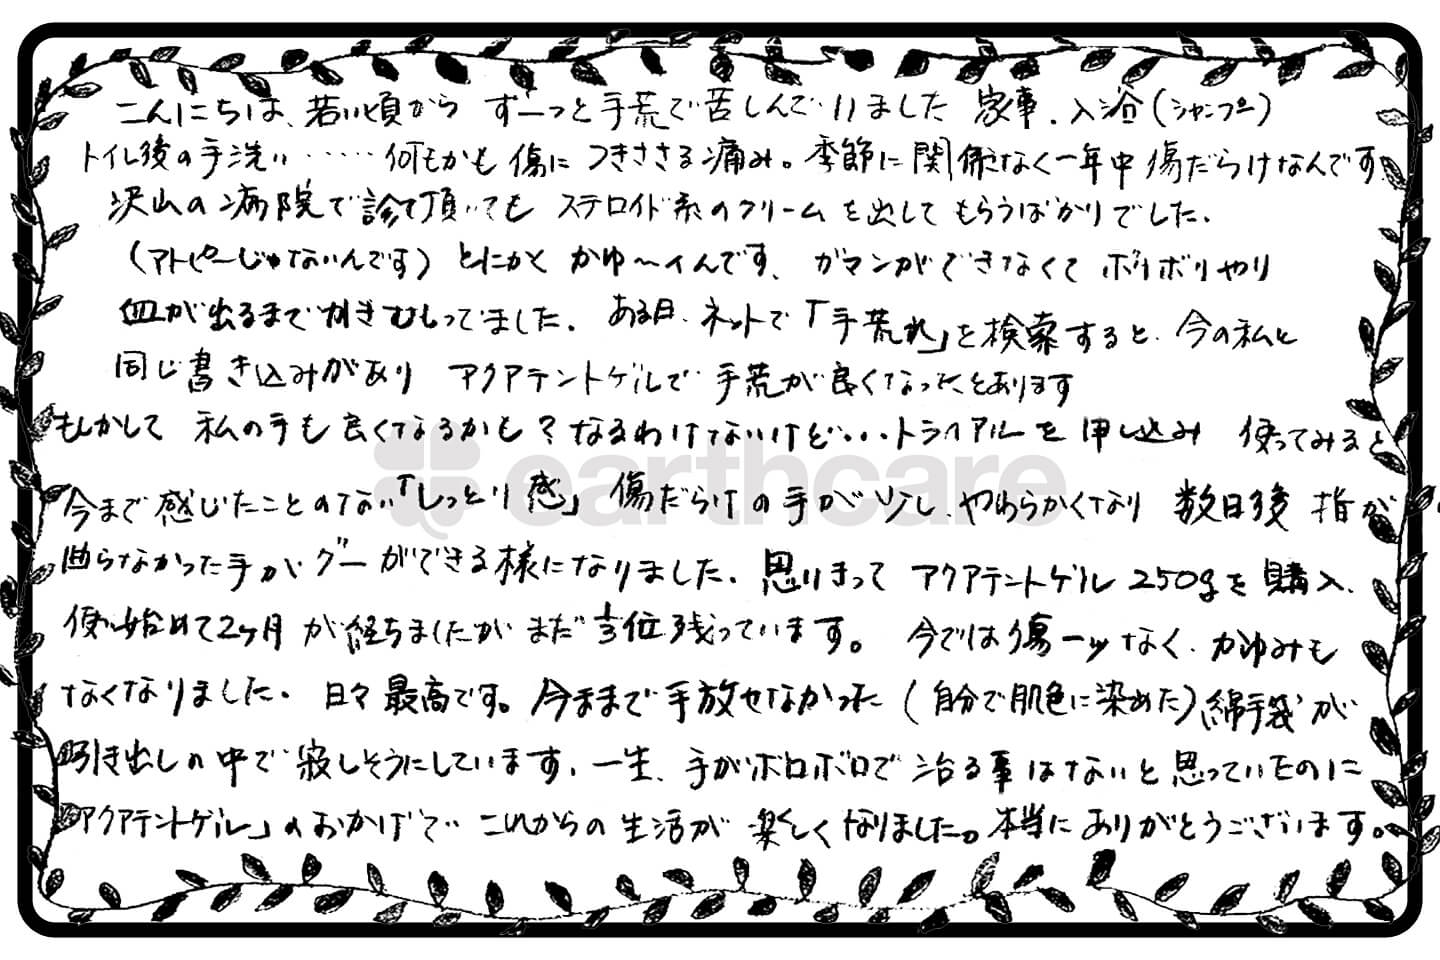 こんにちは、若い頃から ずーっと手荒で苦しんでいました 家事.入浴(シャンプー)
トイレ後の手洗い‥‥‥何もかも傷につきささる痛み。季節に関係なく一年中傷だらけなんです。
沢山の病院で診て頂いても ステロイド系のクリームを出してもらうばかりでした.
(アトピーじゃないんです) とにかく かゆ〜いんです、ガマンができなくて ボリボリやり
血が出るまでかきむしってました. ある日、ネットで「手荒れ」を検索すると、今の私と
同じ書き込みがあり アクアテントゲルで 手荒が良くなったとあります
もしかして 私の手も良くなるかも?なるわけないけど・・・トライアルを申し込み 使ってみると
今まで感じたことのない「しっとり感」 傷だらけの手が少し、やわらかくなり 数日後 指が
曲らなかった手がグーができる様になりました. 思いきって アクアテントゲル250gを購入.
使い始めて2ヶ月が経ちましたが まだ1/3位残っています。 今では傷一ツなく、かゆみも
なくなりました. 日々最高です。今まで手放せなかった(自分で肌色に染めた)綿手袋が
引き出しの中で寂しそうにしています. 一生、手がボロボロで治る事はないと思っていたのに
「アクアテントゲル」のおかげで これからの生活が楽しくなりました。本当にありがとうございます。
earthcare